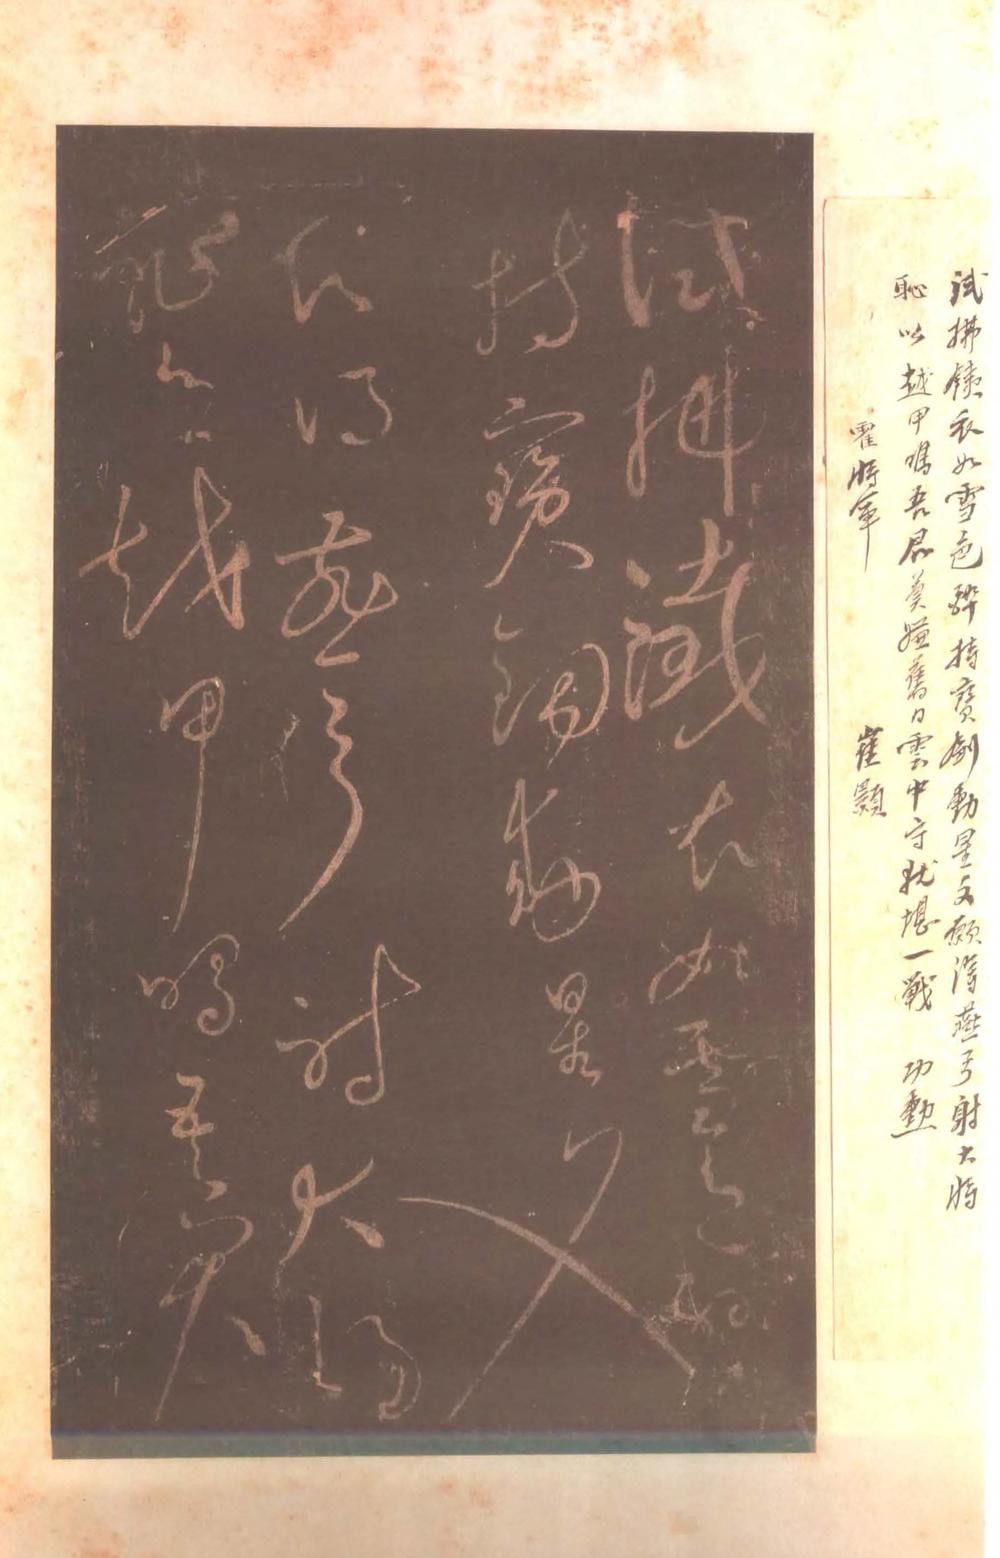 試拂銕衣如雪色醉持寶劍動星文願得燕弓射大將
恥以越甲鳴吾君莫嫌舊日雲中守猶堪一戰 功勳
霍將軍 崔顥
試拂鐵衣如雪色聊
持寶劍動星文
願得燕弓射大將
恥令越甲鳴吾君